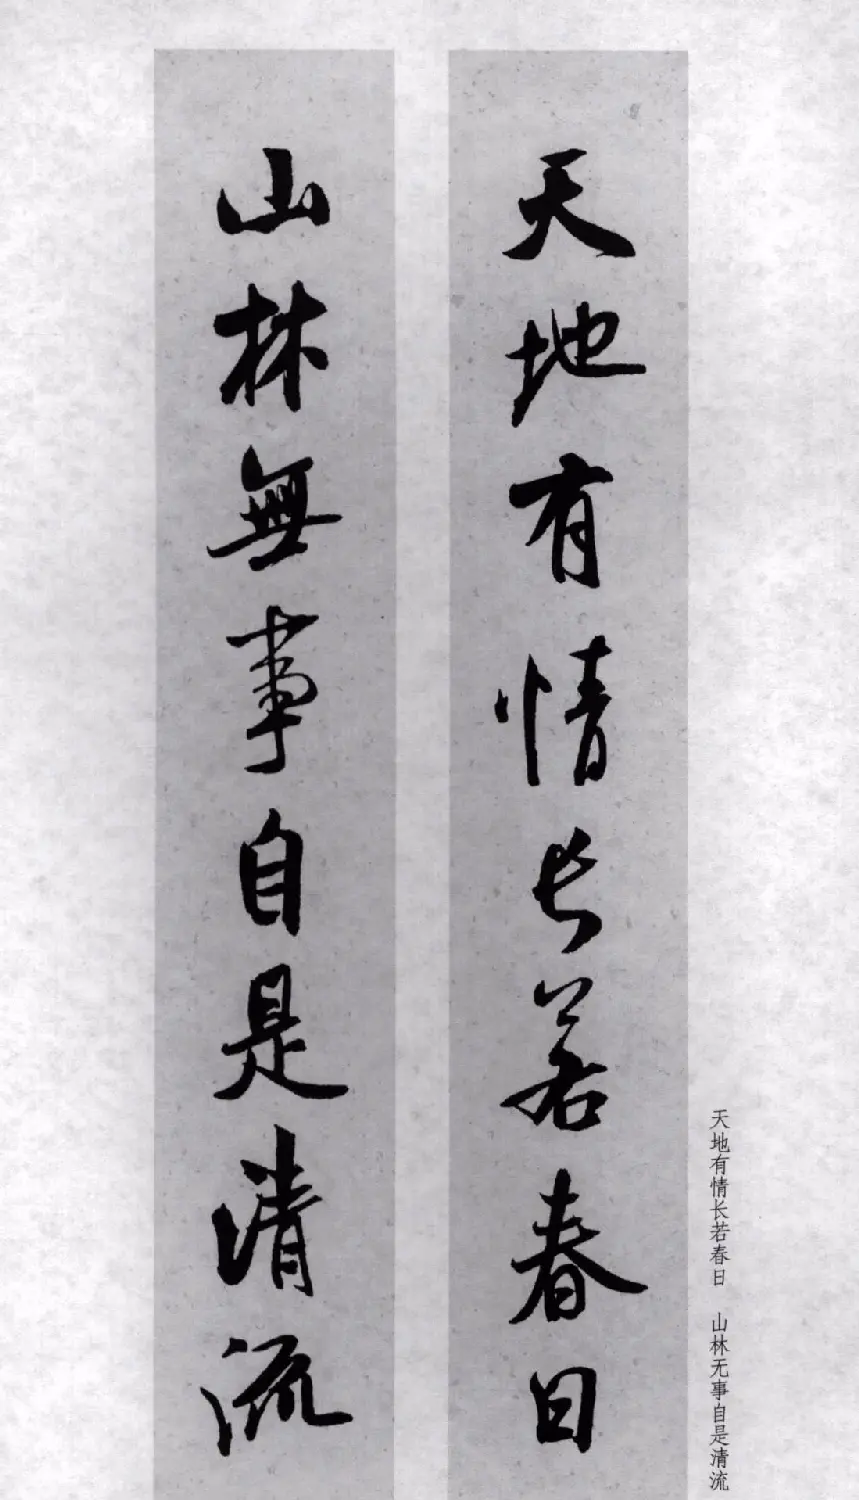 天地有情長若春日
山林無事自是清流
天地有情长若春日 山林无事自是清流